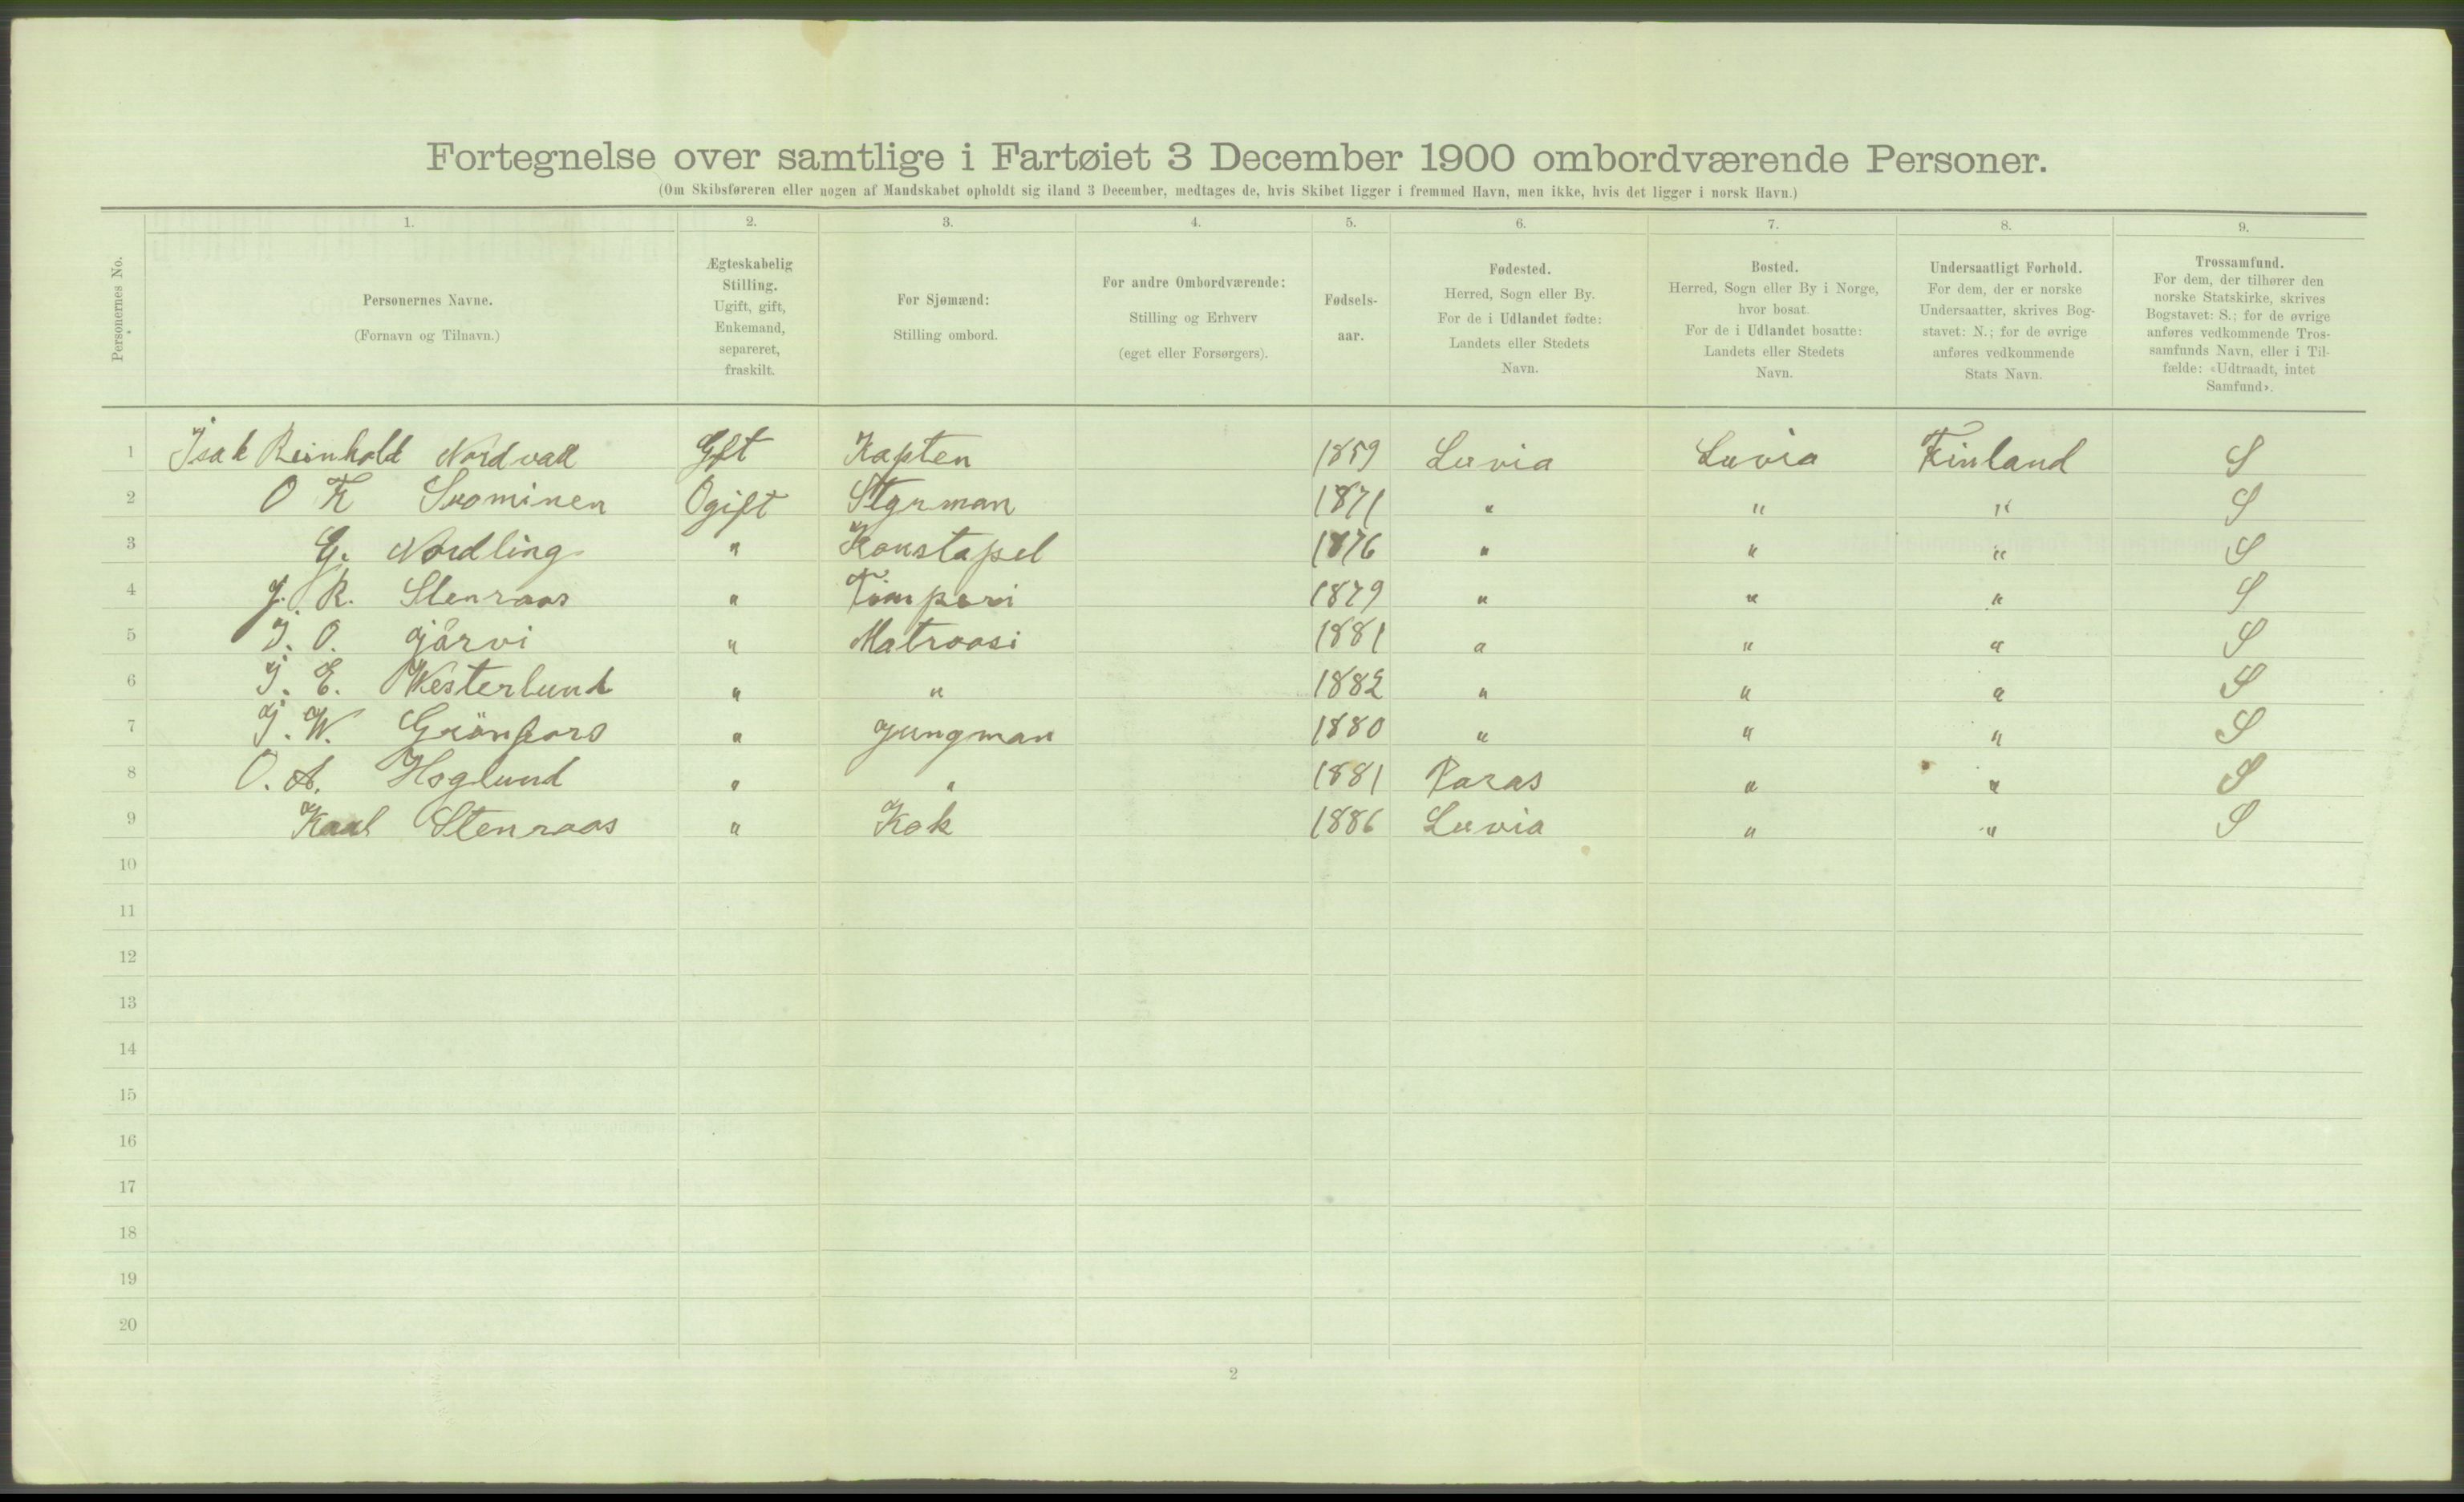 Fortegnelse over samtlige i Fartøiet 3 December 1900 ombordværende Personer.
(Om Skibsføreren eller nogen af Mandskabet opholdt sig iland 3 December, medtages de, hvis Skibet ligger i fremmed Havn, men ikke, hvis det ligger i norsk Havn.)
Personernes No.
1.
Personernes Navne.
(Fornavn og Tilnavn.)
2.
Ægteskabelig
Stilling.
Ugift, gift,
Enkemand,
separeret,
fraskilt.
3.
For Sjømænd:
Stilling ombord.
4.
For andre Ombordværende:
Stilling og Erhverv
(eget eller Forsørgers).
5.
Fødsels-
aar.
6.
Fødested.
Herred, Sogn eller By.
For de i Udlandet fødte:
Landets eller Stedets
Navn.
7.
Bosted.
Herred, Sogn eller By i Norge,
hvor bosat.
For de i Udlandet bosatte:
Landets eller Stedets
Navn.
8.
Undersaatligt Forhold.
For dem, der er norske
Undersaatter, skrives Bog-
stavet: N.; for de øvrige
anføres vedkommende
Stats Navn.
9.
Trossamfund.
For dem, der tilhører den
norske Statskirke, skrives
Bogstavet: S.; for de øvrige
anføres vedkommende Tros-
samfunds Navn, eller i Til-
fælde: «Udtraadt, intet
Samfund».
1 Isak Reinhold Nordvall Gft Kapten 1859 Luvia Luvia Finland S
2 O K Suominen Ogift Styrman 1871 " " " S
3 G. Nordling " Konstapel 1876 " " " S
4 J. R. Stenroos " Timperi 1879 " " " S
5 J. O. Järvi " Matroosi 1881 " " " S
6 J. E. Westerlund " " 1882 " " " S
7 J. W. Grönfors " Jungman 1880 " " " S
8 O. A. Hoglund " " 1881 " " S
9 Kaal Stenroos " Kok 1886 Luvia " " S
10
11
12
13
14
15
16
17
18
19
20
2